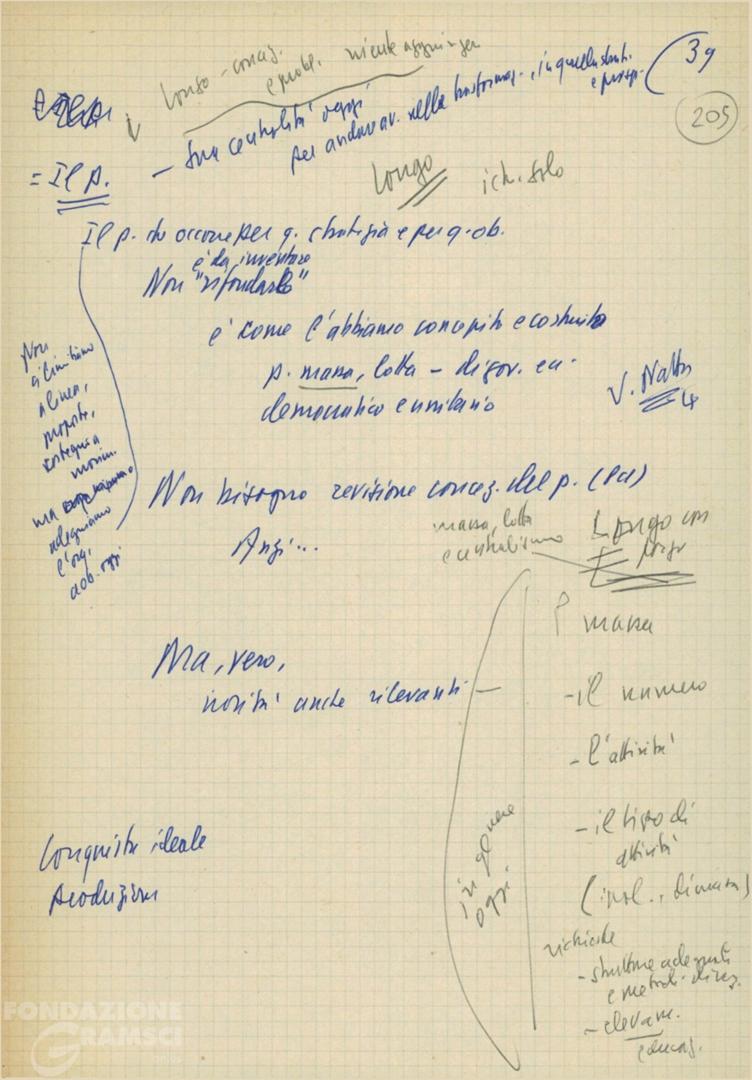 Longo - concez.
e probl. niente aggiunger
39
205
- Sua centralità oggi
per andare av. nella trasformaz.
= Il p.
Longo
ich. solo
Il p. che occorre per q. strategia e per q. ob.
è da inventare
Non "rifondarlo"
è come l'abbiamo concepito e costruito
p. massa, lotta - di gov. ecc.
democratico e unitario
V. Natta
Non
ci limitiamo
a linea,
proposte,
sostegni a
movim.
ma
adeguiamo
l'org.
a ob. oggi
Non bisogno revisione concez. del p.
Anzi...
massa, lotta
e centralismo
Longo con
P massa
Ma, vero,
novità anche rilevanti -
- il numero
- l'attività
- il tipo di
attività
in genere
oggi
Conquista ideale
richieste
- strutture adeguate
e metodi direz.
- elevam.
educaz.
FONDAZIONE
GRAMSCI